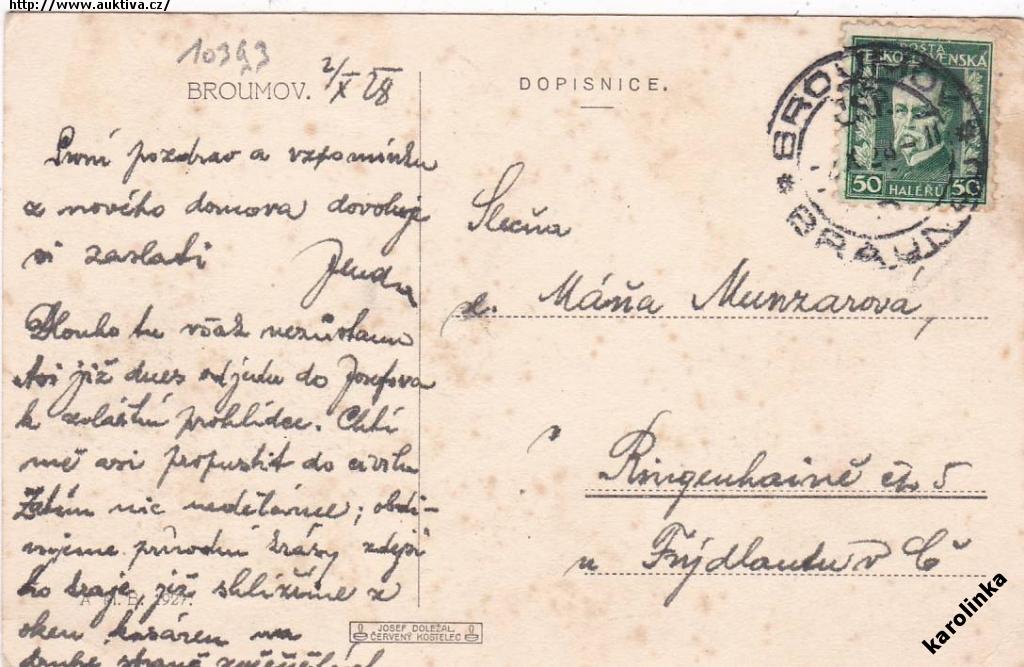 http://www.auktiva.cz/
10393
BROUMOV. 2/X 28
DOPISNICE.
POŠTA
ČESKOSLOVENSKÁ
50 HALÉŘŮ 50
* BROUMOV *
BRAUNAU
První pozdrav a vzpomínku
z nového domova dovoluje
si zaslati Jenda
Dlouho tu však nezůstanu
Asi již dnes odjedu do Josefova
k zvláštní prohlídce. Chtí
mě asi propustit do civilu
Zatím nic neděláme; obdi-
vujeme přírodní krásy zdejší
ho kraje, již shlížíme z
oken kasáren na
druhé straně
A. M. B. 1927.
JOSEF DOLEŽAL
ČERVENÝ KOSTELEC
Slečna
Máňa Munzarová,
v
Ringenhaině čp. 5
u Frýdlantu v Č
karolinka